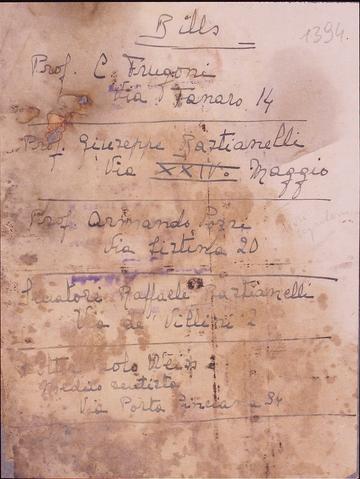 Bills
1394.
Prof. C. Frugoni
Via Tanaro 14
Prof. Giuseppe Bastianelli
Via XXIV° Maggio
Prof. Armando
Via Sistina 20
Senatore Raffaele Bastianelli
Via dei Villini 2
Weiss
Medico dentista
Via Porta Pinciana 34